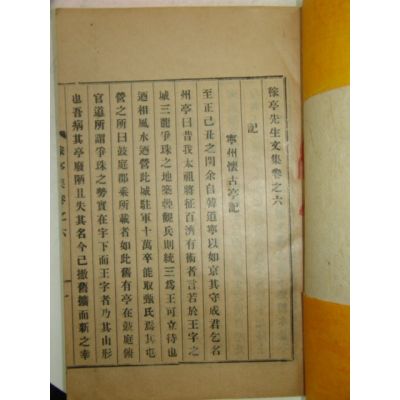 稼亭先生文集卷之六
記
寧州懷古亭記
至正己丑之閏余自韓道寧以如京其守成君乞名
州亭曰昔我太祖將征百濟有術者言若於王字之
城三龍爭珠之地築壘觀兵則統三爲王可立待也
迺相風水迺營此城駐軍十萬卒能取甄氏焉其屯
營之所曰鼓庭郡乘所載者如此舊有亭在鼓庭俯
官道所謂爭珠之勢實在宇下而王字者乃其山形
也吾病其亭庳陋且失其名今已撤舊擴而新之幸
稼亭集卷之六
一